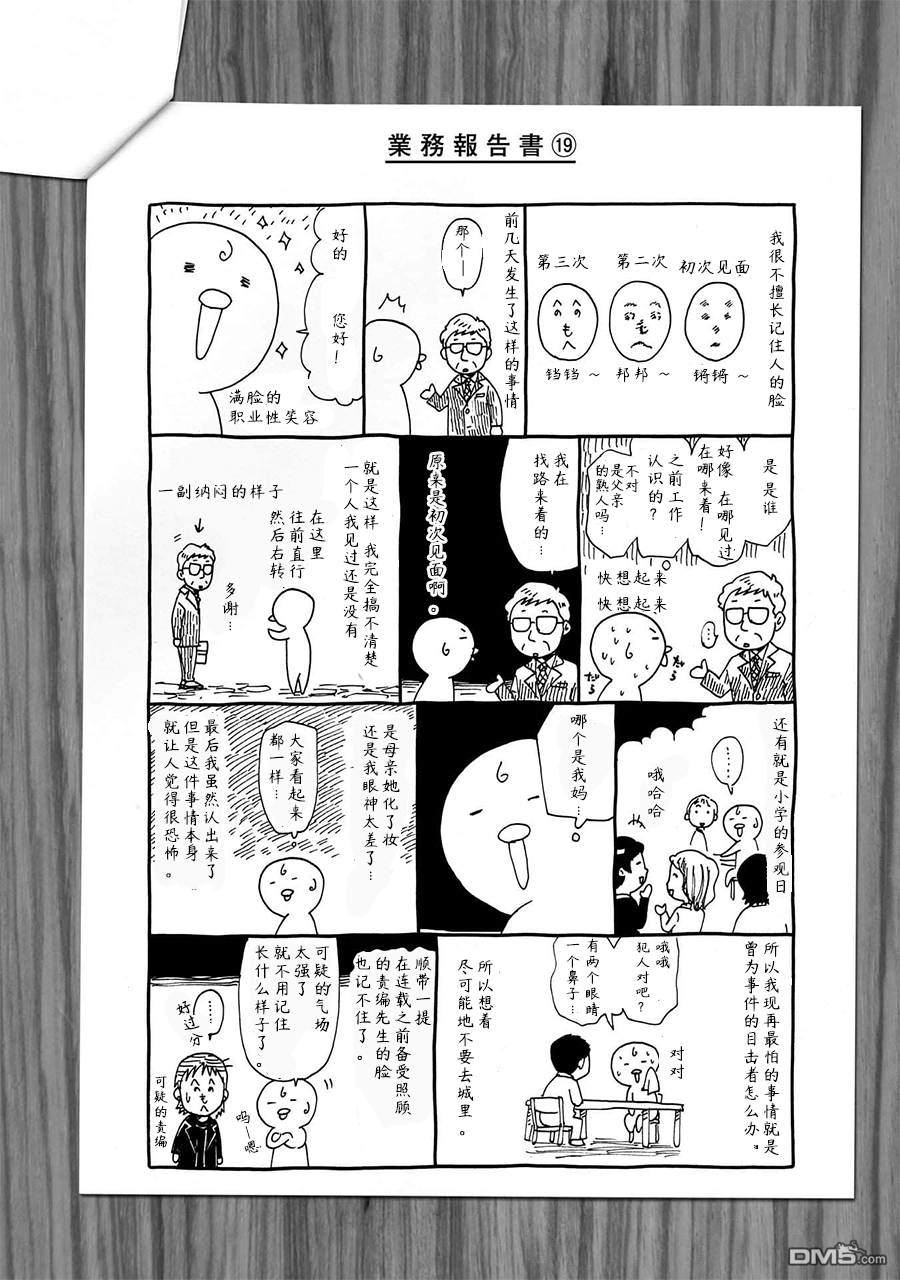 業務報告書⑲
我很不擅长记住人的脸
初次见面
第二次
第三次
锵锵～
邦邦～
铛铛～
前几天发生了这样的事情
那个—
好的
您好！
满脸的
职业性笑容
是 是谁
好像 在哪见过
在哪来着！
之前工作
认识的？
不对
是父亲
的熟人吗…
快想起来
快想起来
…
だら
だら
我在
找路来着的…
原来是初次见面啊。
就是这样 我完全搞不清楚
一个人我见过还是没有
在这里
往前直行
然后右转
多谢…
一副纳闷的样子
还有就是小学的参观日
……
哦哈哈
哪个是我妈…
是母亲她化了妆
还是我眼神太差了…
大家看起来
都一样…
最后我虽然认出来了
但是这件事情本身
就让人觉得很恐怖。
所以我现再最怕的事情就是
曾为事件的目击者怎么办。
哦哦
犯人对吧？
有两个眼睛
一个鼻子…
对对
所以想着
尽可能地不要去城里。
顺带一提
在连载之前备受照顾
的责编先生的脸
也记不住了。
可疑的气场
太强了
就不用记住
长什么样子了。
呜—嗯
……
好过分
可疑的责编
DM5.com